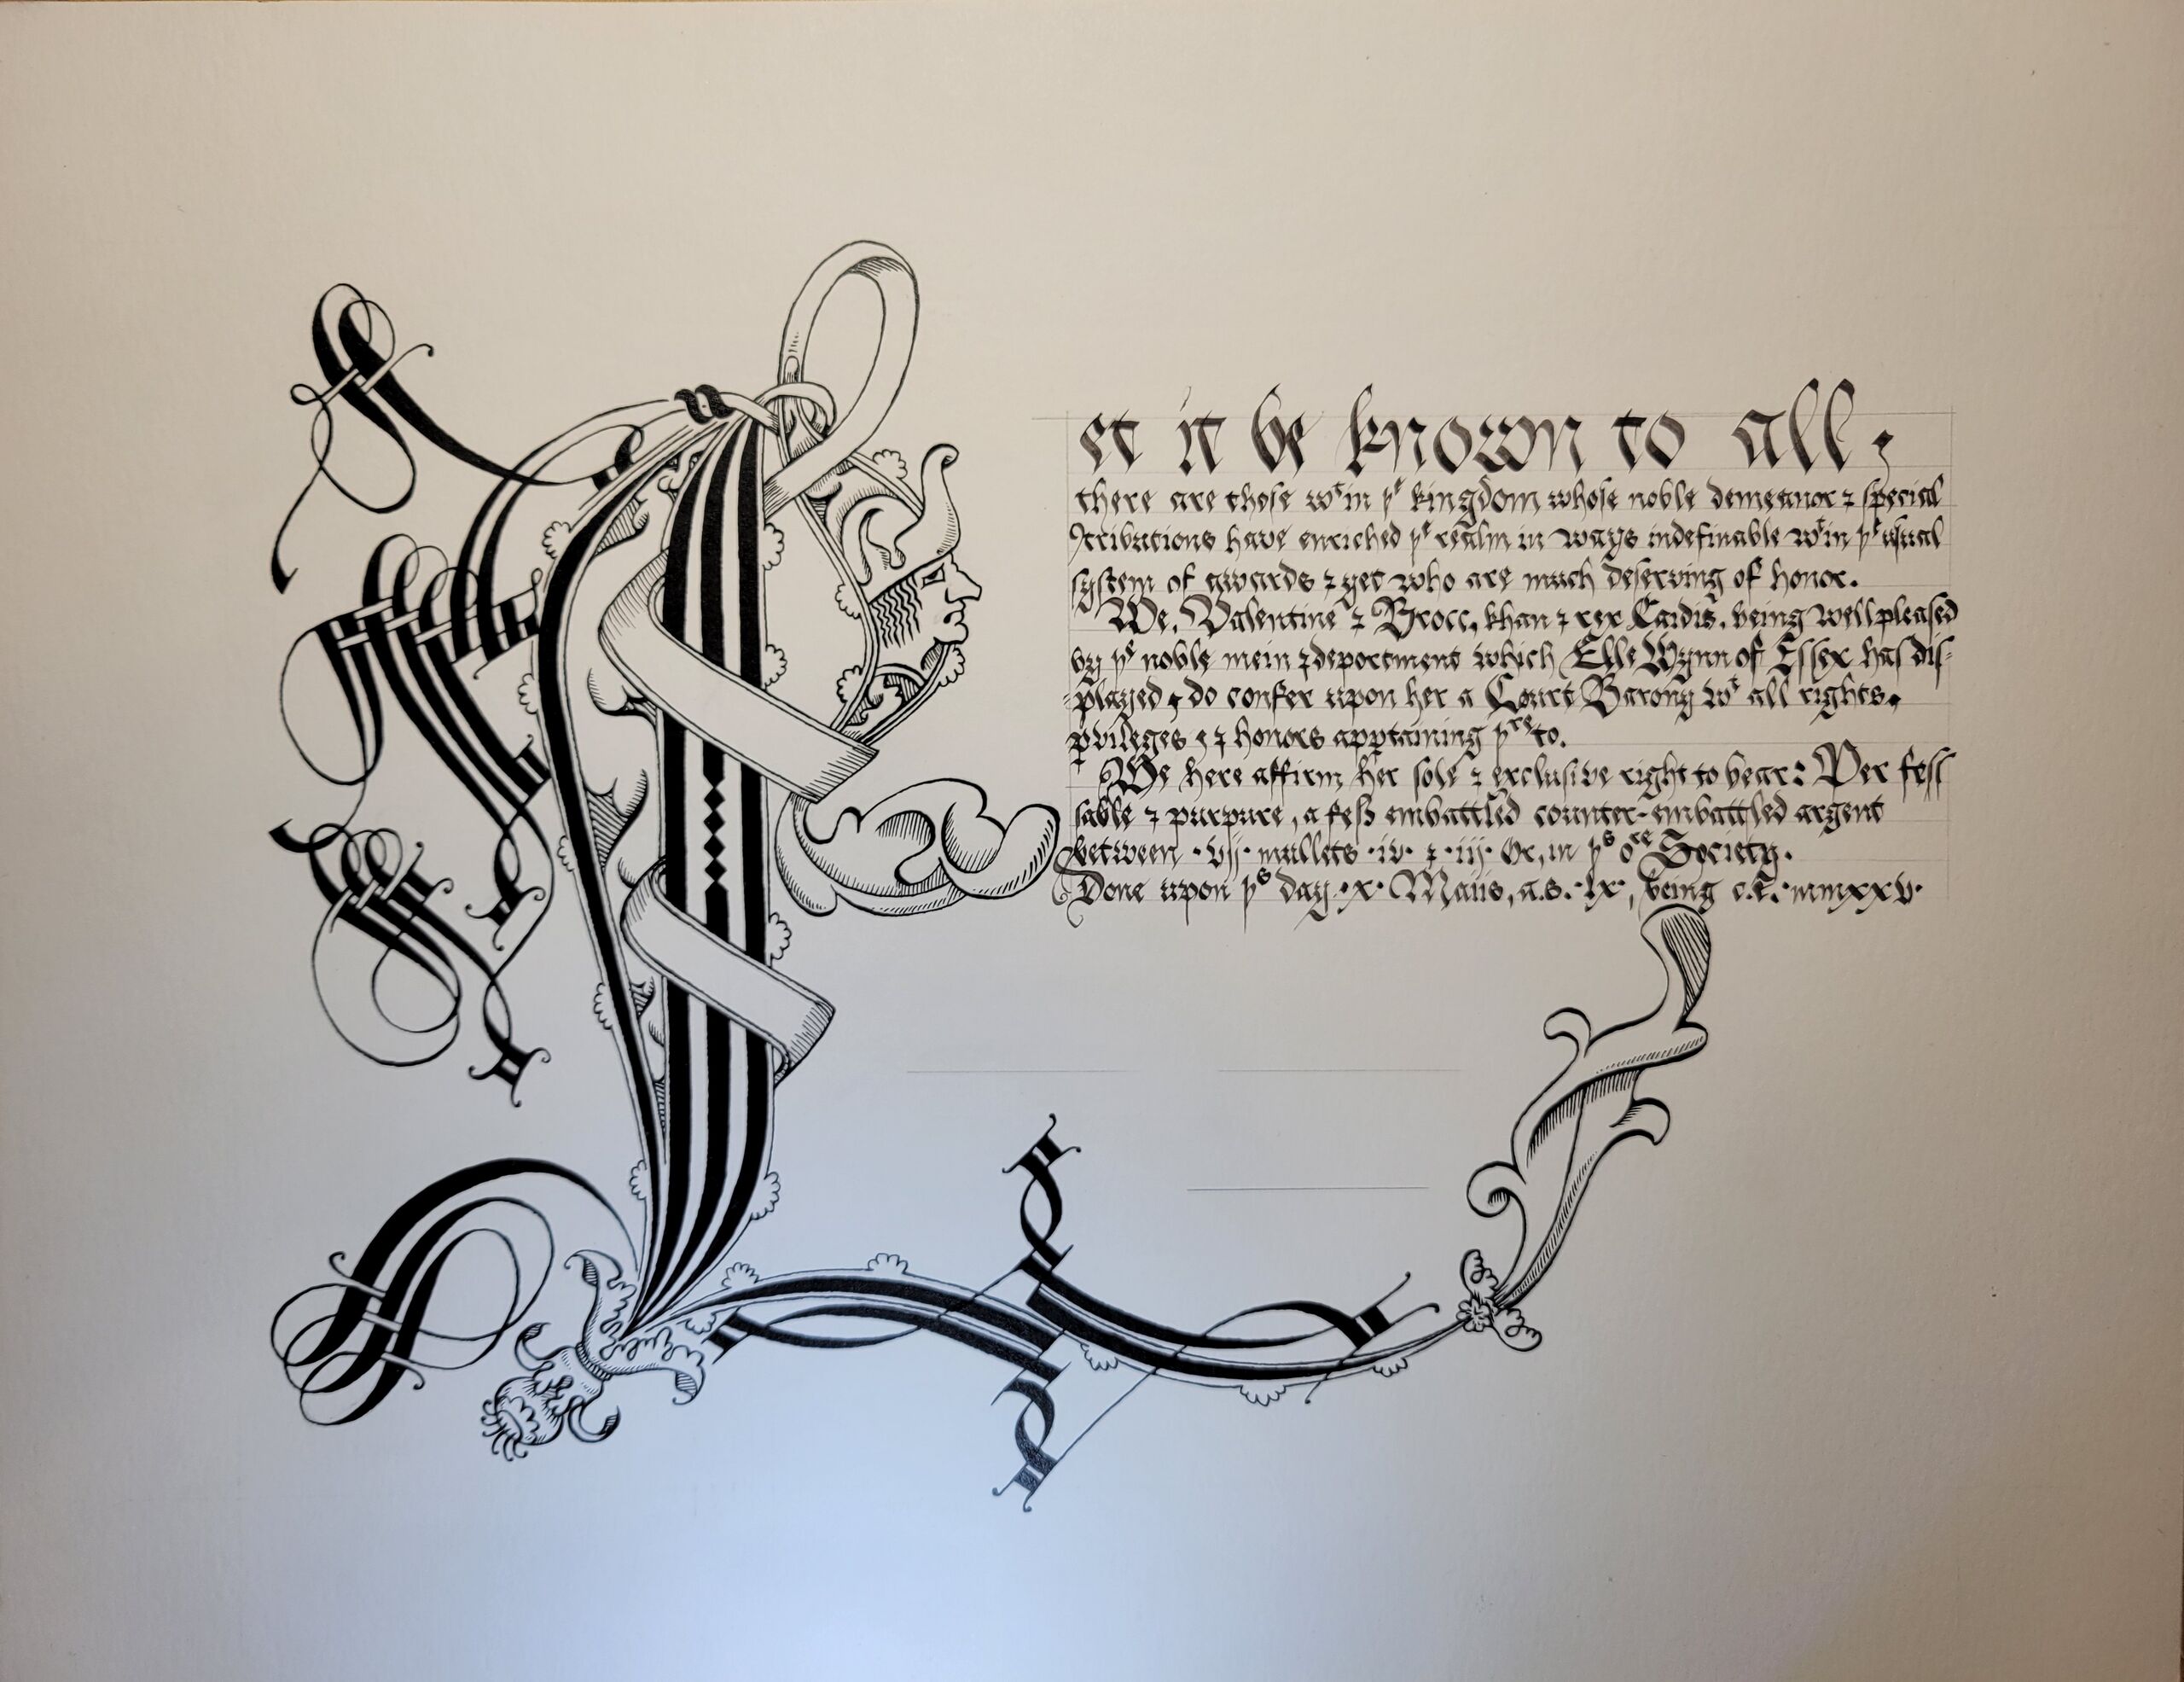 Let it be known to all;
there are those wᵗin þᵉ kingdom whose noble demeanor ⁊ special
ꝯtributions have enriched þᵉ realm in ways indefinable wᵗin þᵉ usual
system of awards ⁊ yet who are much deserving of honor.
We, Valentine ⁊ Brocc, khan ⁊ rex Caidis, being well pleased
by þᵉ noble mein ⁊ deportment which Elle Wynn of Essex has dis-
-played, do confer upon her a Court Barony wᵗ all rights,
pvileges, ⁊ honors apptaining þʳᵉto.
We here affirm her sole ⁊ exclusive right to bear: Per fess
sable ⁊ purpure, a feß embattled counter-embattled argent
between ·vij· mullets ·iv· ⁊ ·iij· Or, in þˢ oʳᵉ Society.
Done upon þˢ day ·x· Maiis, a.s. ·lx·, being c.e. ·mmxxv·